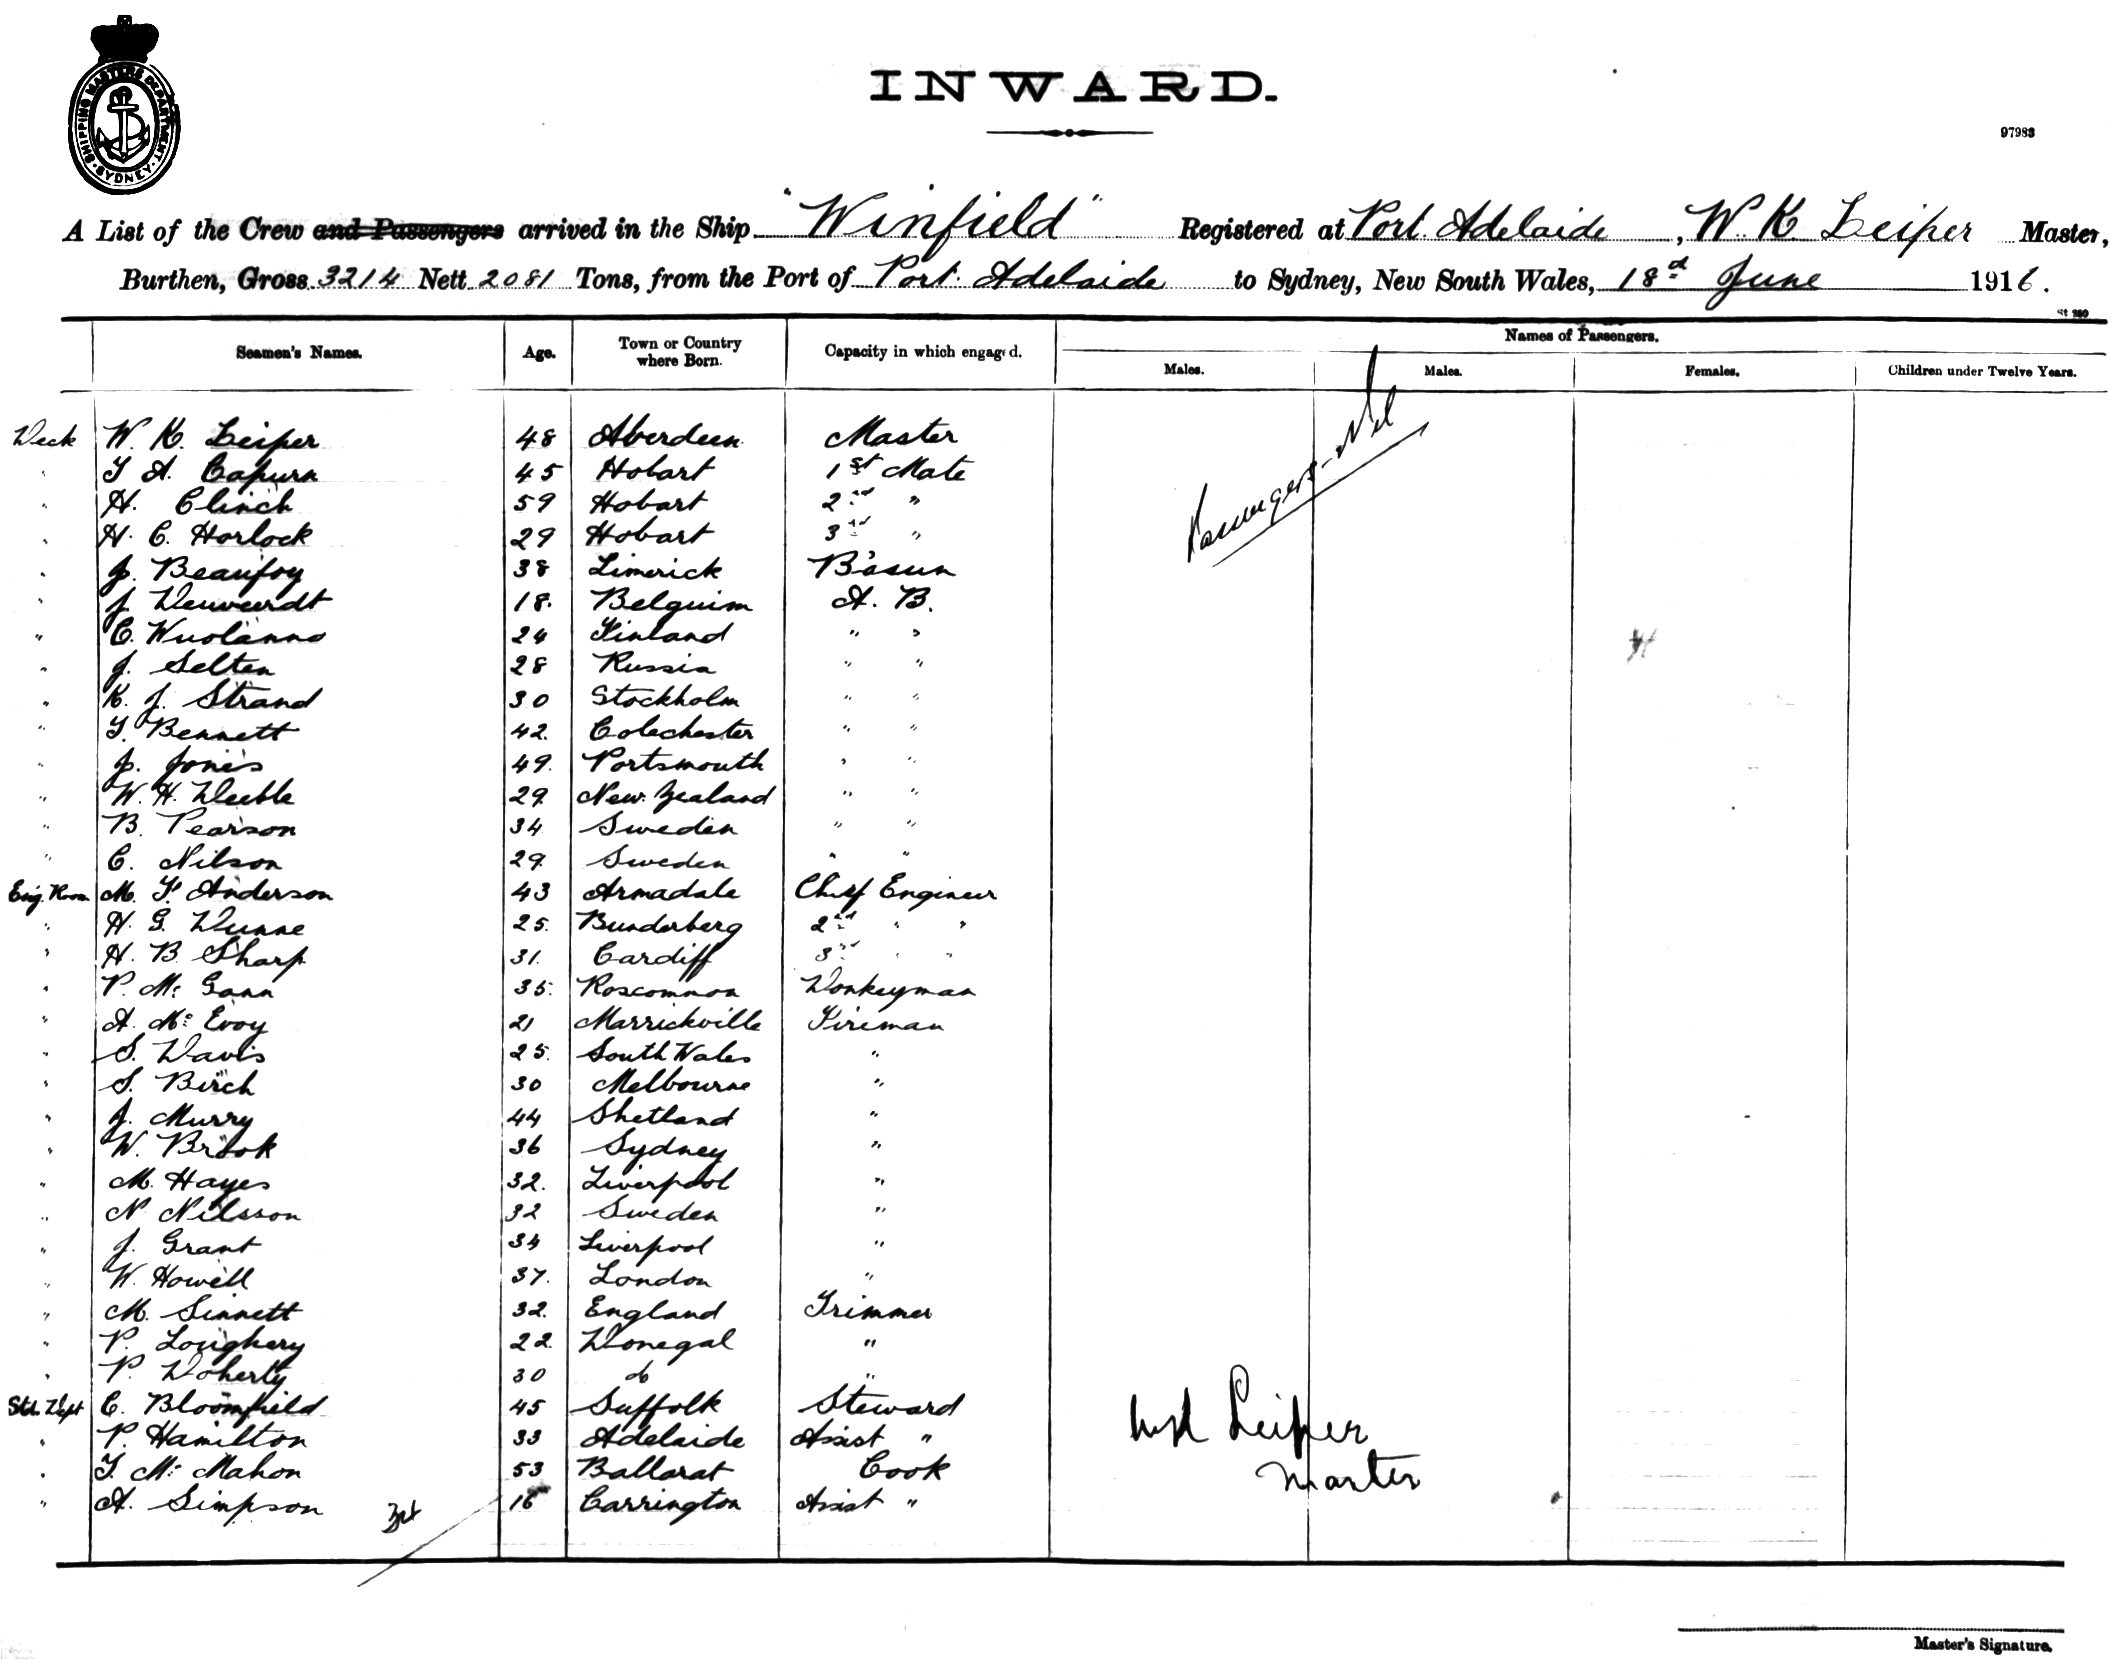 SHIPPING MASTERS DEPARTMENT. SYDNEY
INWARD.
97983
A List of the Crew and Passengers arrived in the Ship "Winfield" Registered at Port Adelaide, W. K. Leiper Master,
Burthen, Gross 3214 Nett 2081 Tons, from the Port of Port Adelaide to Sydney, New South Wales, 18th June 1916.
Seamen's Names. Age. Town or Country where Born. Capacity in which engaged. Names of Passengers.
Males. Males. Females. Children under Twelve Years.
Passengers - Nil
Deck W. K. Leiper 48 Aberdeen Master
" T A. Capurn 45 Hobart 1st Mate
" H. Clinch 59 Hobart 2nd "
" H. C. Horlock 29 Hobart 3rd "
" J. Beaufoy 38 Limerick Bosun
" J 18. Belguim A. B.
" C. 24 Finland " "
" J. Selten 28 Russia " "
" K. J. Strand 30 Stockholm " "
" T. Bennett 42. Colechester " "
" J. Jones 49. Portsmouth " "
" W. H. Deeble 29. New Zealand " "
" B. Pearson 34 Sweden " "
" C. Nilson 29. Sweden " "
Eng. Room M. F. Anderson 43 Armadale Chief Engineer
" H. G. Dunne 25. Bunderberg 2nd " "
" H. B Sharp 31. Cardiff 3rd " "
" P. Mc Gann 35. Roscommon Donkeyman
" A. Mc Evoy 21 Marrickville Fireman
" S. Davis 25. South Wales "
" S. Birch 30 Melbourne "
" J. Murry 44 Shetland "
" W. Brook 36 Sydney "
" M. Hayes 32. Liverpool "
" N Nilsson 32 Sweden "
" J. Grant 34 Liverpool "
" W. Howell 37. London "
" M. Sinnett 32. England Trimmer
" P. Loughery 22. Donegal "
" P. Doherty 30 do "
Std. Dept C. Bloomfield 45 Suffolk Steward
" P. Hamilton 33 Adelaide Assist "
" T. Mc Mahon 53 Ballarat Cook
" A. Simpson 16 Carrington Assist "
WK Leiper
Master
Master's Signature.